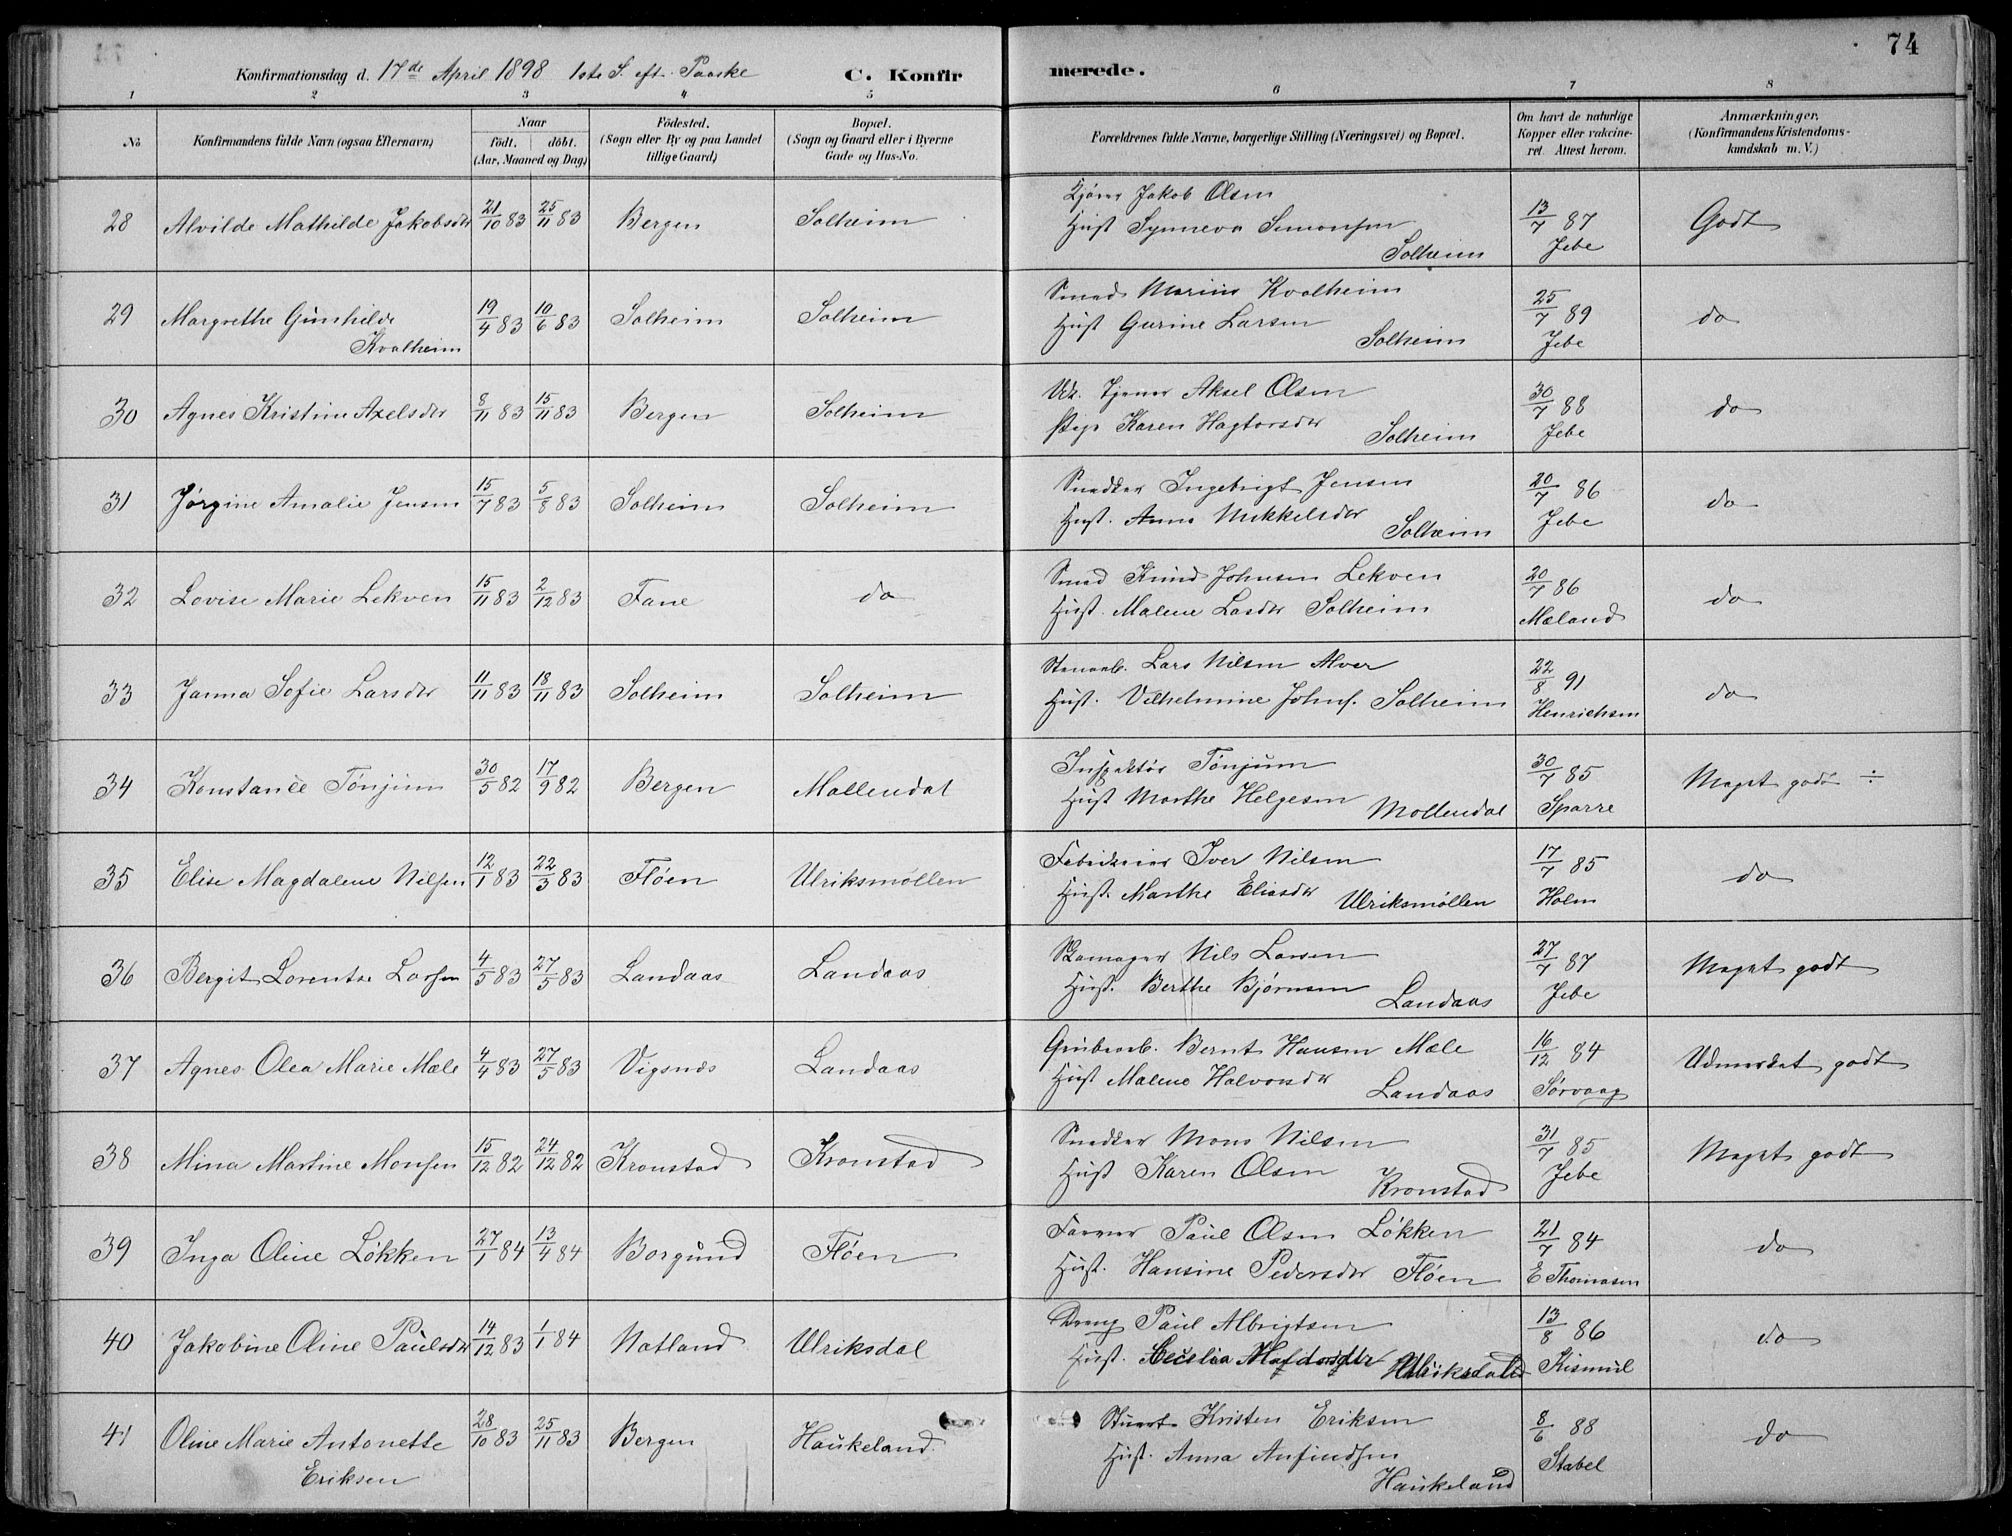 74
Konfirmationsdag d. 17de April 1898 1ste S. eft. Paaske C. Konfirmerede.
1 2 3 4 5 6 7 8
No Konfirmandens fulde Navn (ogsaa Efternavn) Naar födt. döbt. (Aar, Maaned og Dag) Födested. (Sogn eller By og paa Landet tillige Gaard) Bopæl. (Sogn og Gaard eller i Byerne Gade og Hus-No. Forældrenes fulde Navne, borgerlige Stilling (Næringsvei) og Bopæl. Om havt de naturlige Kopper eller vakcineret. Attest herom. Anmærkninger. (Konfirmandens Kristendomskundskab m. V.)
28 Alvilde Mathilde Jakobsdtr 21/10 83 25/11 83 Bergen Solheim Kjörer Jakob Olsen
Hust Synneva Simonsen Solheim 13/7 87 Jebe Godt
29 Margrethe Gunhilde Kvalheim 19/4 83 10/6 83 Solheim Solheim Smed Marius Kvalheim
Hust Gurine Larsen Solheim 25/7 89 Jebe do
30 Agnes Kristine Axelsdtr 8/11 83 15/11 83 Bergen Solheim Tjener Aksel Olsen
Pige Karen Hagtorsdtr Solheim 30/7 88 Jebe do
31 Jørgine Amalie Jensen 15/7 83 5/8 83 Solheim Solheim Snedker Ingebrigt Jensen
Hust. Anna Mikkelsdtr Solheim 20/7 86 Jebe do
32 Lovise Marie Lekven 15/11 83 2/12 83 Fane do Smed Knud Johnsen Lekven
Hust. Malene Lasdtr Solheim 20/7 86 Mæland do
33 Janna Sofie Larsdtr 11/11 83 18/11 83 Solheim Solheim Stenarb. Lars Nilsen Alver
Hust. Vilhelmine Johns. Solheim 22/8 91 Henrichsen do
34 Konstance Tønjum 30/5 82 17/9 82 Bergen Møllendal Inspektör Tønjum
Hust Marthe Helgesen Møllendal 30/7 85 Sparre Meget godt ÷
35 Elise Magdalene Nilsen 12/1 83 22/3 83 Fløen Ulriksmøllen Iver Nilsen
Hust. Marthe Eliasdtr Ulriksmøllen 17/7 85 Holm do
36 Bergit Lorentse Larsen 4/5 83 27/5 83 Landaas Landaas Skomager Nils Larsen
Hust. Berthe Bjørnsen Landaas 27/7 87 Jebe Meget godt
37 Agnes Olea Marie Mæle 4/4 83 27/5 83 Vigsnæs Landaas Grubearb. Bernt Hansen Mæle
Hust Malene Halvorsdtr Landaas 16/12 84 Sørvaag Udmerket godt
38 Mina Martine Monsen 15/12 82 24/12 82 Kronstad Kronstad Snedker Mons Nilsen
Hust Karen Olsen Kronstad 31/7 85 Jebe Meget godt
39 Inga Oline Løkken 27/1 84 13/4 84 Borgund Fløen Farver Paul Olsen Løkken
Hust. Hansine Pedersdtr Fløen 21/7 84 E Thomasen do
40 Jakobine Oline Paulsdtr 14/12 83 1/1 84 Natland Ulriksdal Dreng Paul Albrigtsen
Hust. Cecelia Ulriksdal 13/8 86 Kismul do
41 Oline Marie Antonette Eriksen 28/10 83 25/11 83 Bergen Haukeland. Stuert Kristen Eriksen
Hust. Anna Anfindsen Haukeland 8/6 88 Stabel do